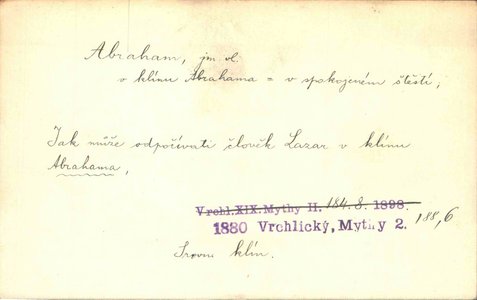 Abraham, jm. vl.
v klínu Abrahama = v spokojeném štěstí,
Jak může odpočívati člověk Lazar v klínu
Abrahama,
Vrchl.XIX.Mythy II. 184.8. 1898.
1880 Vrchlický, Mythy 2. 188,6
Srovn klín.